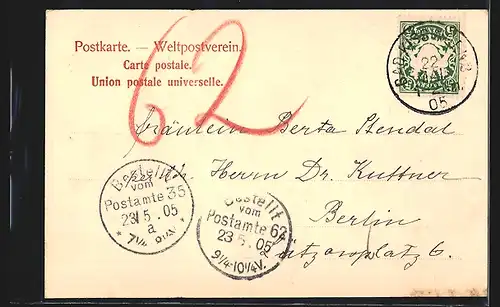 Postkarte. — Weltpostverein.
Carte postale.
Union postale universelle.
62
22
05
Fräulein Berta Stendal
Herrn Dr. Kuttner
Berlin
Lützowplatz 6.
Bestellt
vom
Postamte 35
23/5.05
a
Bestellt
vom
Postamte 62
23 5.05
9¼-10¼V.